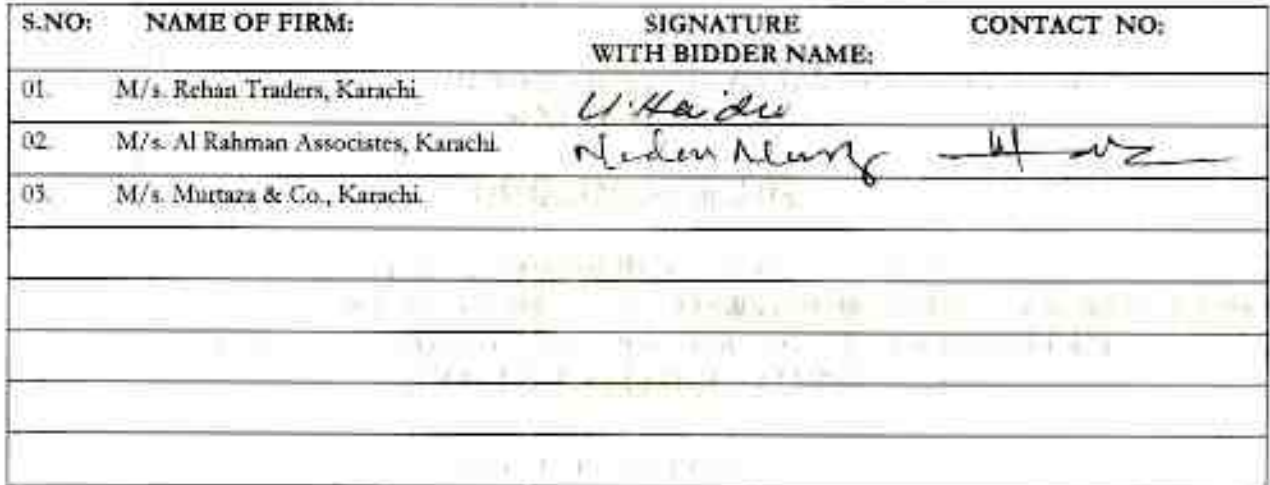 S.NO: NAME OF FIRM: SIGNATURE WITH BIDDER NAME: CONTACT NO:
01. M/s. Rehan Traders, Karachi. U.Haider
02. M/s. Al Rahman Associates, Karachi.
03. M/s. Murtaza & Co., Karachi.